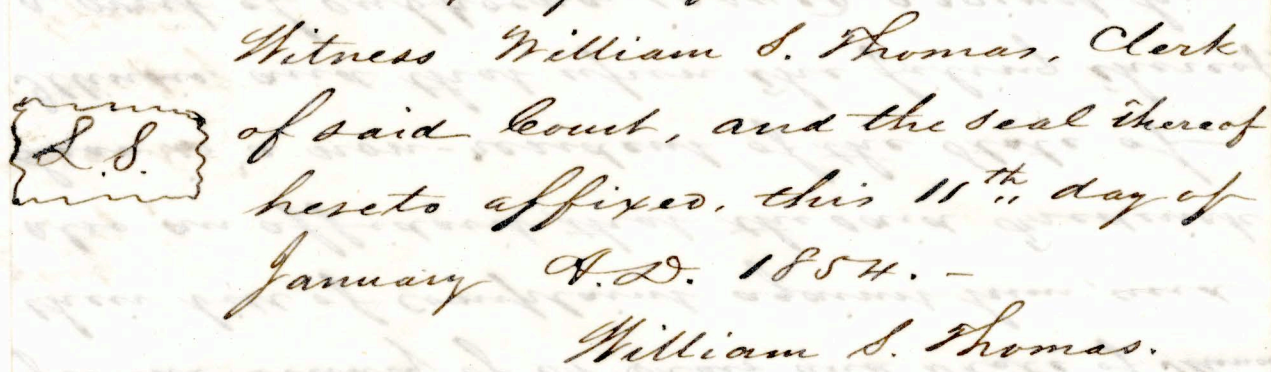 Witness William S. Thomas, Clerk
L.S. of said Court, and the seal thereof
hereto affixed, this 11th day of
January A.D. 1854. –
William S. Thomas.